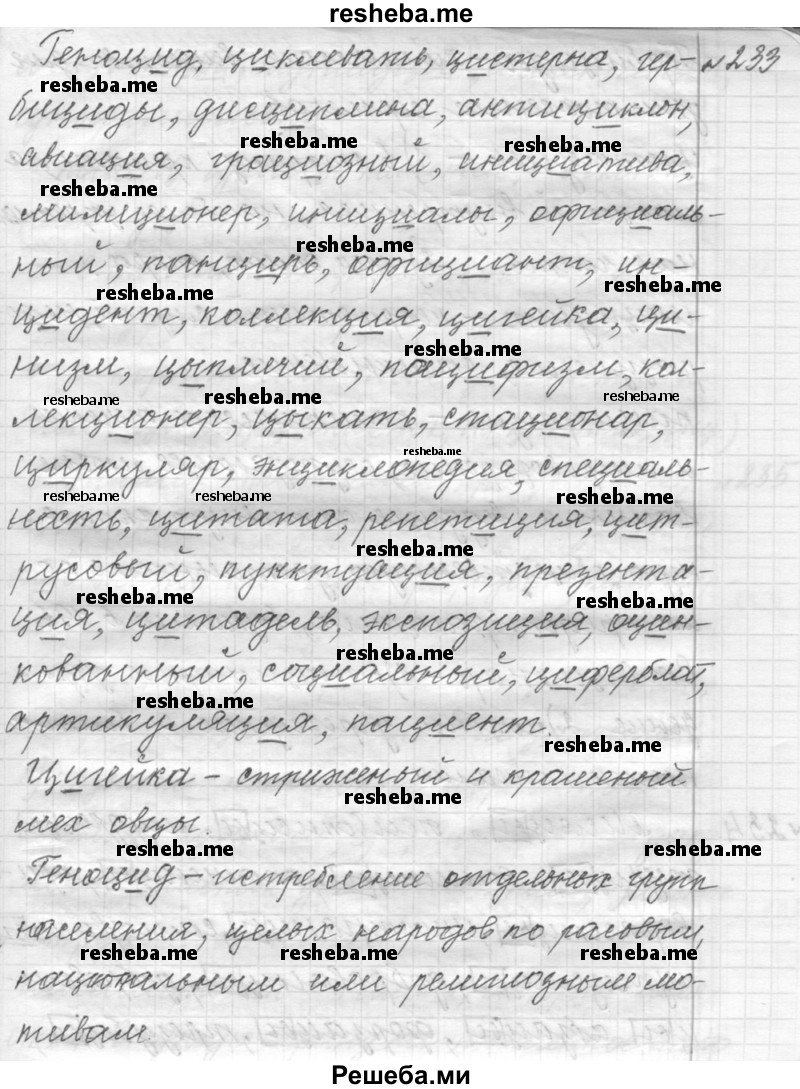 resheba.me
Геноцид, циклевать, цистерна, гер- №233
resheba.me
бициды, дисциплина, антициклон,
resheba.me resheba.me
авиация, грациозный, инициатива,
resheba.me
милиционер, инициалы, официаль-
resheba.me
ный, панцирь, официант, ин-
resheba.me resheba.me
цидент, коллекция, цигейка, ци-
resheba.me
низм, цыплячий, пацифизм, кол-
resheba.me resheba.me resheba.me
лекционер, цыкать, стационар,
resheba.me
циркуляр, энциклопедия, специаль-
resheba.me resheba.me resheba.me
ность, цитата, репетиция, цит-
resheba.me
русовый, пунктуация, презента-
resheba.me resheba.me
ция, цитадель, экспозиция, оцин-
resheba.me
кованный, социальный, циферблат,
resheba.me
артикуляция, пациент.
resheba.me
Цигейка – стриженый и крашеный
resheba.me
мех овцы.
resheba.me resheba.me
Геноцид – истребление отдельных групп
населения, целых народов по расовым,
resheba.me resheba.me resheba.me
национальным или религиозным мо-
тивам.
Решеба.ми